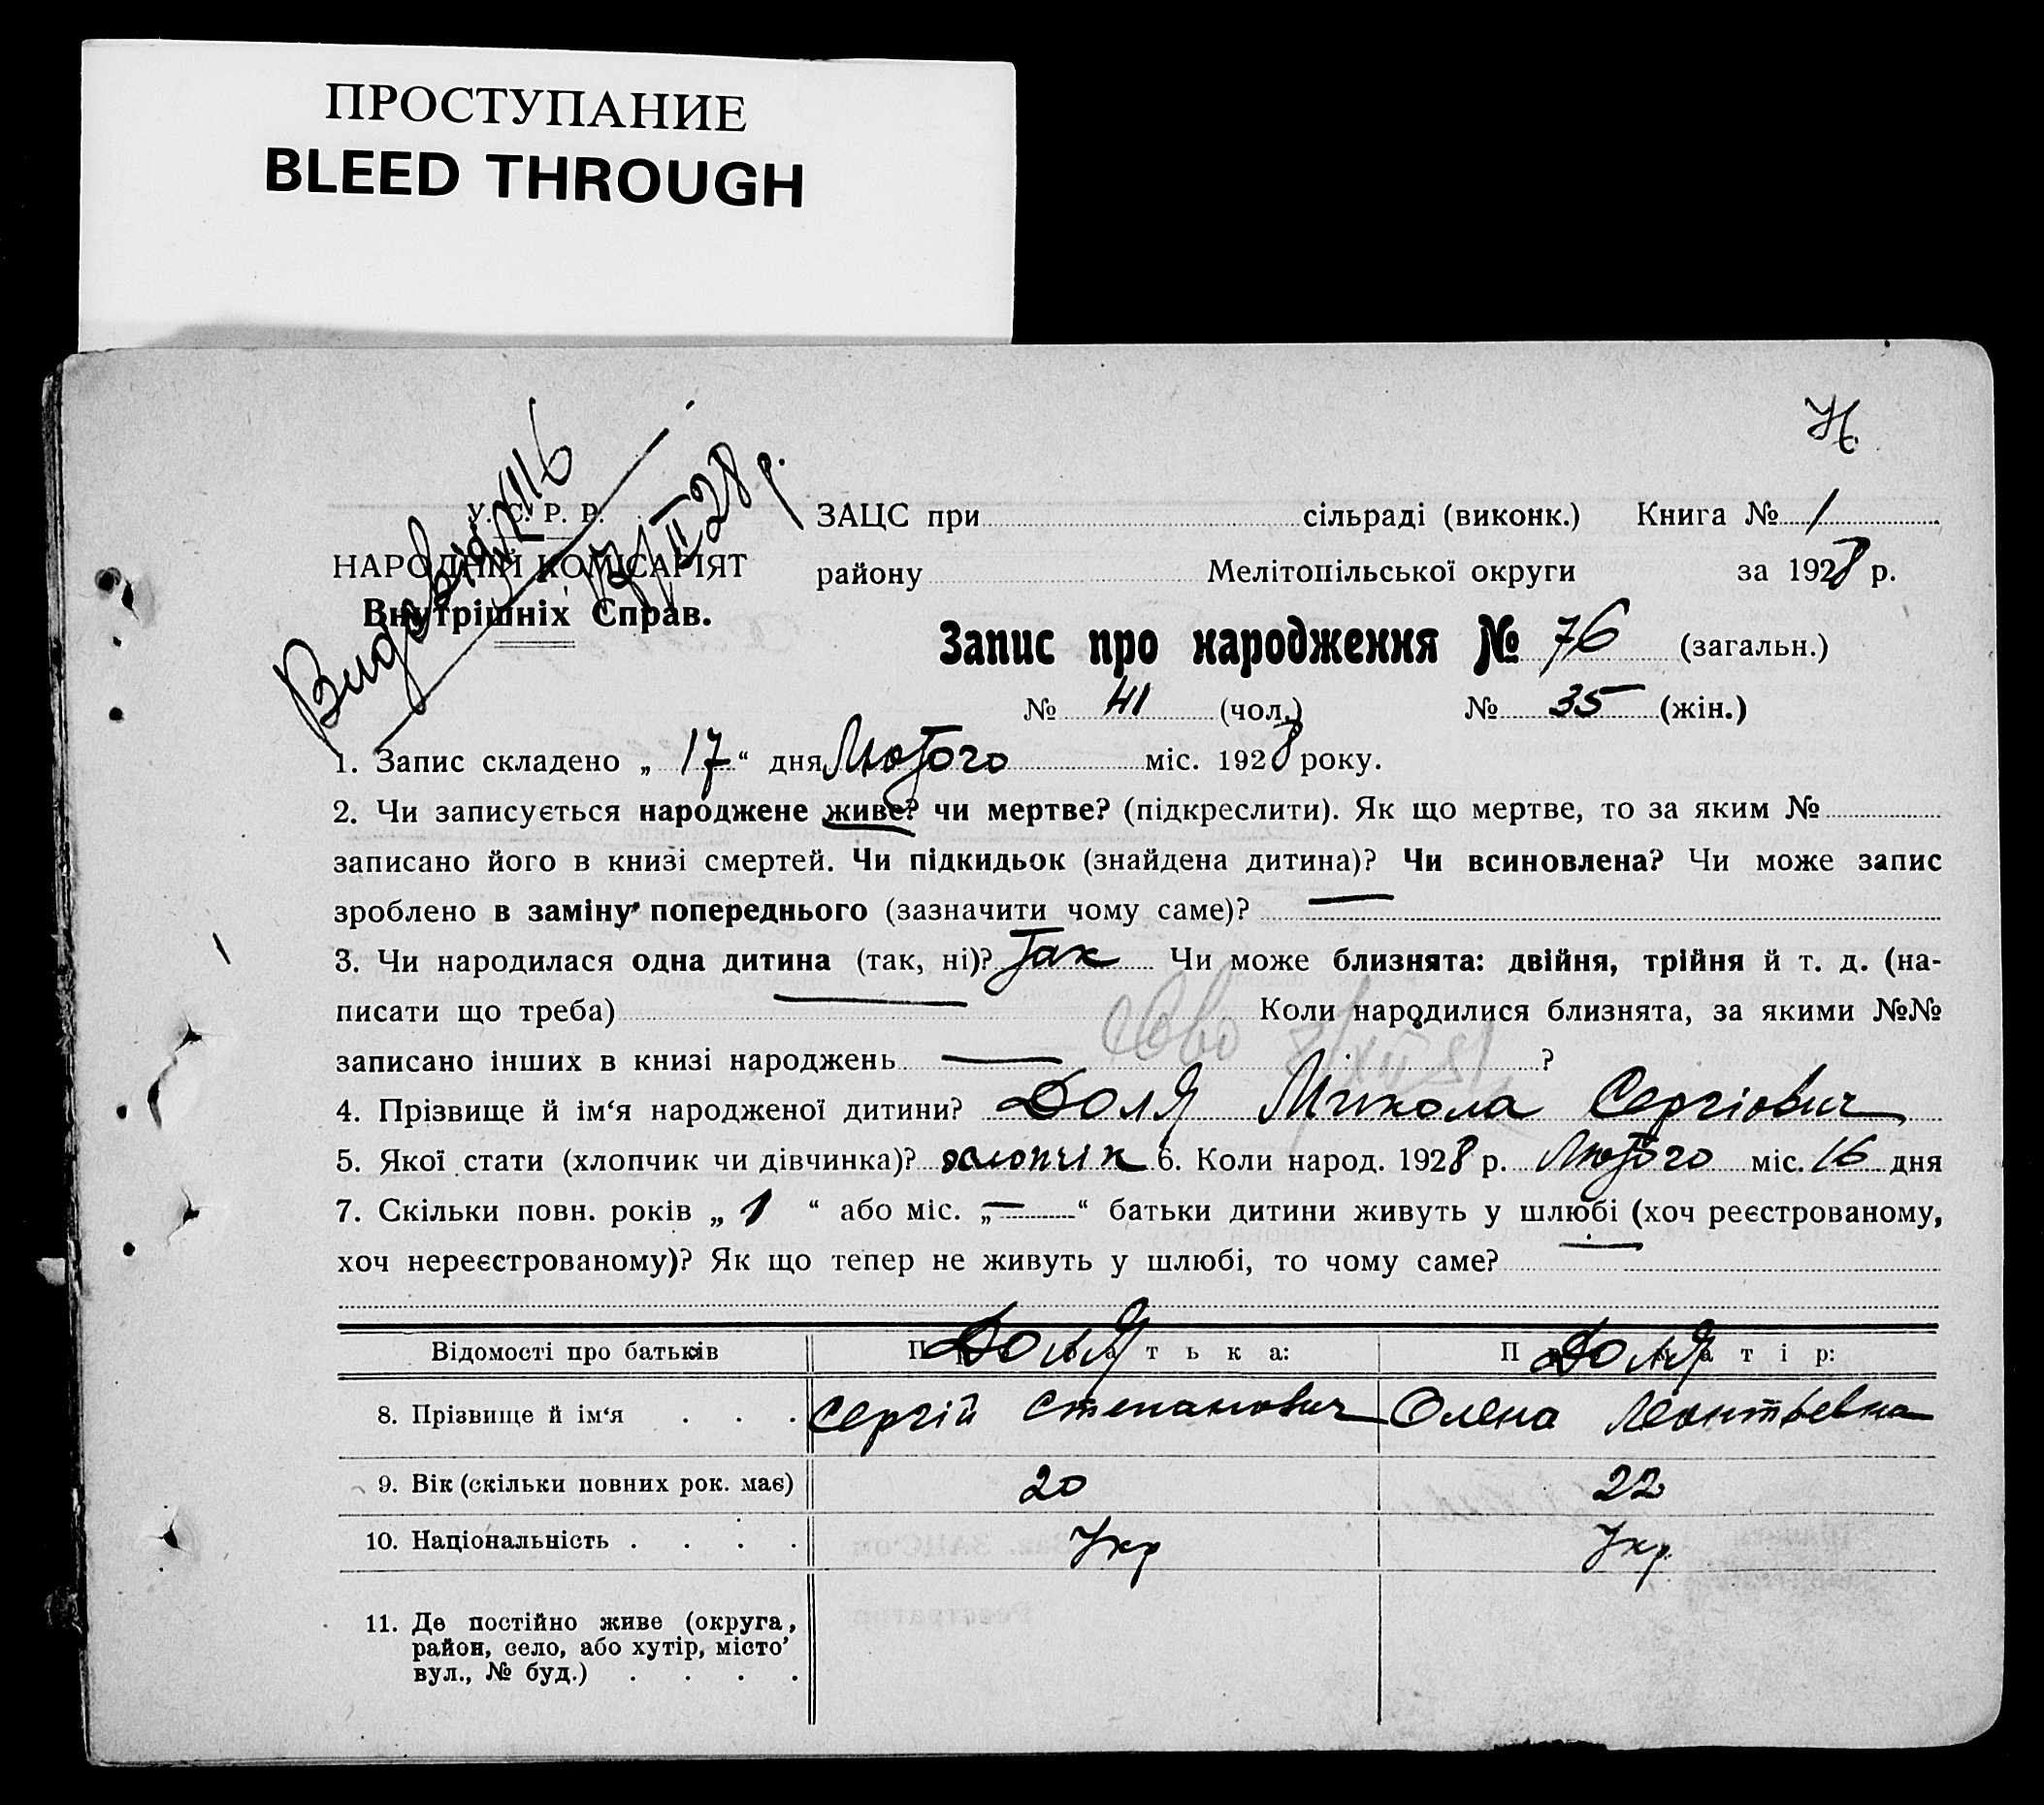 ПРОСТУПАНИЕ
BLEED THROUGH
Н.
У. С. Р. Р.
НАРОДНІЙ КОМІСАРІЯТ
Внутрішніх Справ.
17/II 28 р.
ЗАЦС при сільраді (виконк.) Книга № 1
району Мелітопільської округи за 1928 р.
Запис про народження № 76 (загальн.)
№ 41 (чол.) № 35 (жін.)
1. Запис складено „ 17 “ дня Лютого міс. 1928 року.
2. Чи записується народжене живе? чи мертве? (підкреслити). Як що мертве, то за яким №
записано його в книзі смертей. Чи підкидьок (знайдена дитина)? Чи всиновлена? Чи може запис
зроблено в заміну попереднього (зазначити чому саме)? —
3. Чи народилася одна дитина (так, ні)? Так Чи може близнята: двійня, трійня й т. д. (на-
писати що треба) — Коли народилися близнята, за якими №№
записано інших в книзі народжень — ?
4. Прізвище й ім‘я народженої дитини? Доля Микола Сергіович
5. Якої стати (хлопчик чи дівчинка)? хлопчик 6. Коли народ. 1928 р. Лютого міс. 16 дня
7. Скільки повн. років „ 1 “ або міс. „ — “ батьки дитини живуть у шлюбі (хоч реєстрованому,
хоч нереєстрованому)? Як що тепер не живуть у шлюбі, то чому саме? —
Відомості про батьків Про батька: Про матір:
Доля Доля
8. Прізвище й ім‘я . . . Сергій Степанович Олена Леонтьевна
9. Вік (скільки повних рок. має) 20 22
10. Національність . . . . Укр Укр.
11. Де постійно живе (округа,
район, село, або хутір, місто
вул., № буд.) . . . .